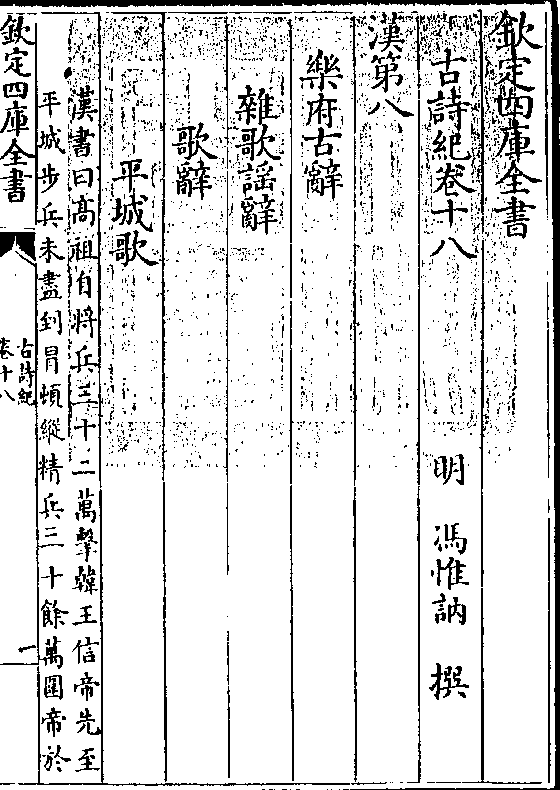 欽定四庫全書
古詩紀卷十八
明 馮惟訥 撰
漢第八
樂府古辭
雜歌謡辭
歌辭
平城歌
漢書曰高祖自將兵三十二萬擊韓王信帝先至
平城步兵未盡到冒頓縱精兵三十餘萬圍帝於
欽定四庫全書
古詩紀
卷十八
一